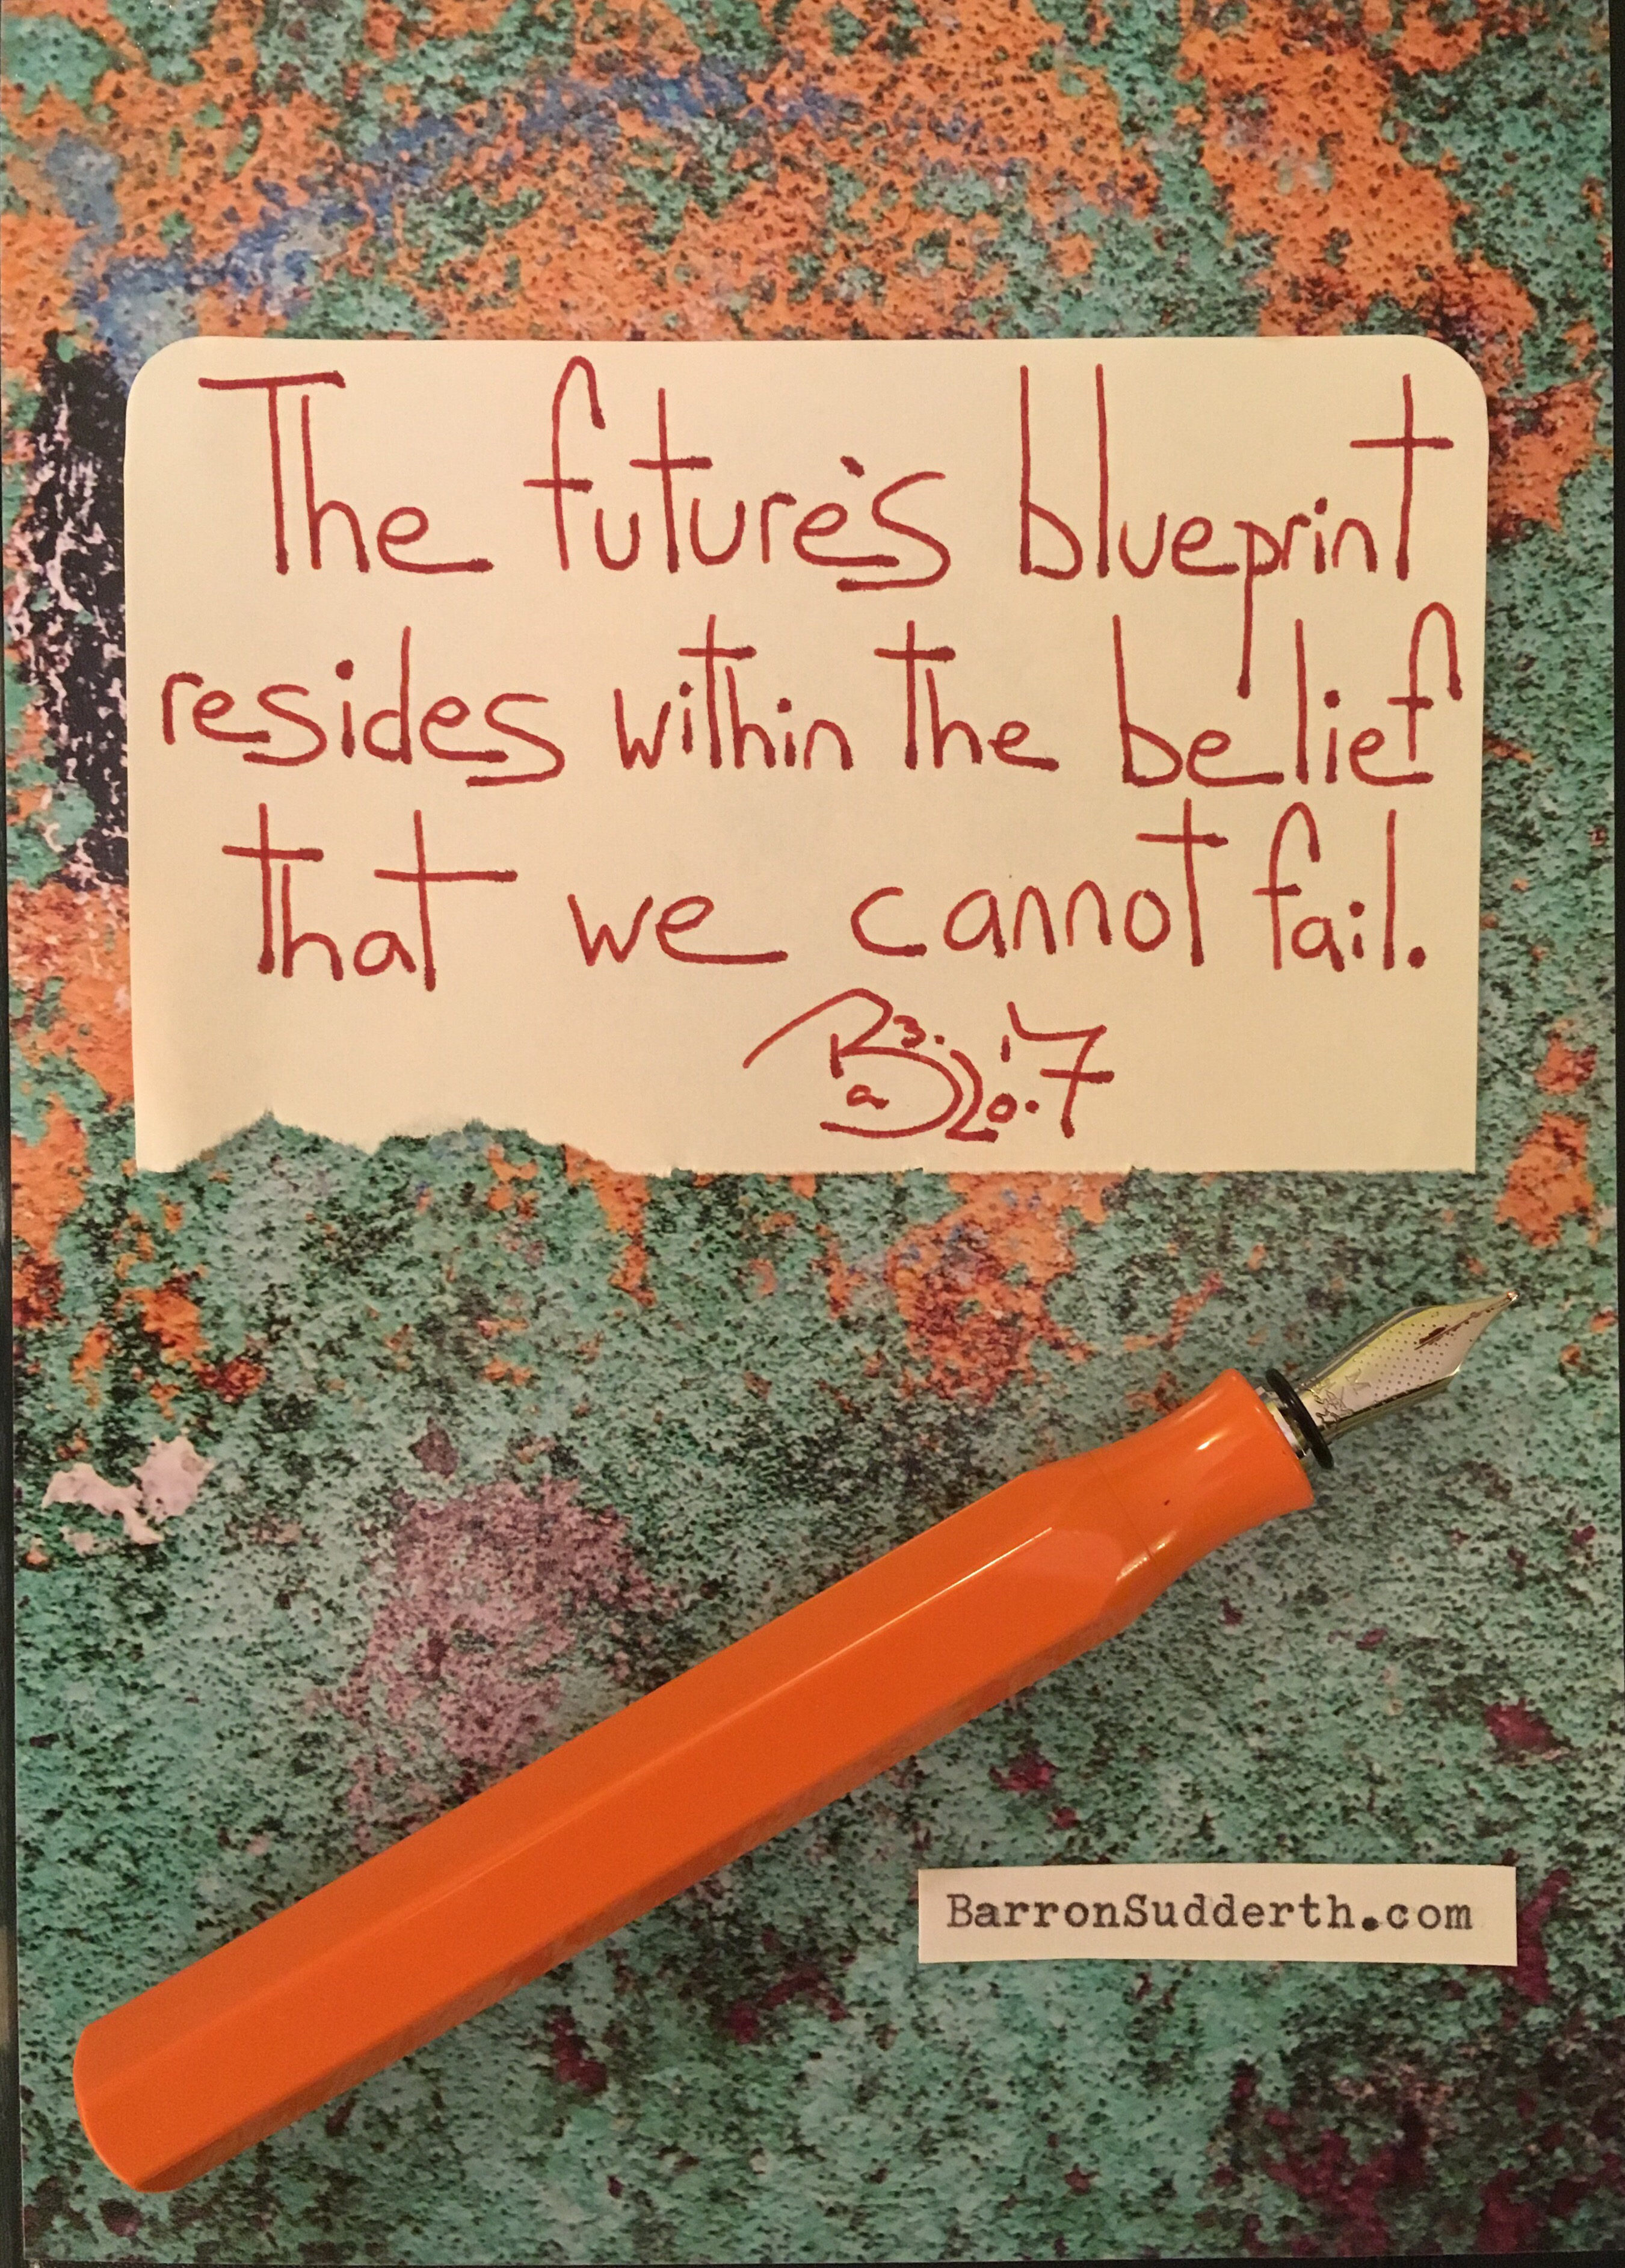 The future's blueprint
resides within the belief
that we cannot fail.
BarronSudderth.com